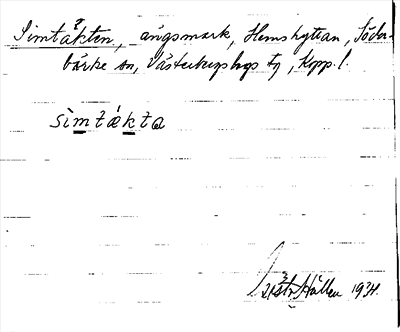 Simtåkten, ängsmark, Hemshyttan, Söder-
bärke sn, Västerbergslags tg, Kopp. l.
sìmtákta
Hållen 1934.